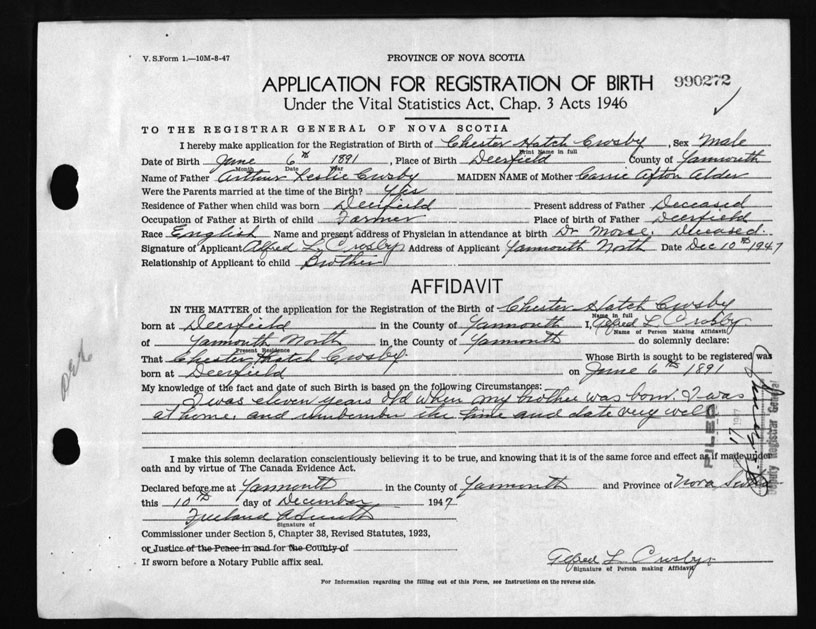 V. S. Form 1.—10M-8-47
PROVINCE OF NOVA SCOTIA
APPLICATION FOR REGISTRATION OF BIRTH 990272
Under the Vital Statistics Act, Chap. 3 Acts 1946
TO THE REGISTRAR GENERAL OF NOVA SCOTIA
I hereby make application for the Registration of Birth of Chester Hatch Crosby, Sex Male
Print Name in full
Date of Birth June 6th 1891, Place of Birth Deerfield County of Yarmouth
Month Date Year
Name of Father Arthur Leslie Crosby MAIDEN NAME of Mother Carrie Afton Alder
Were the Parents married at the time of the Birth? Yes
Residence of Father when child was born Deerfield Present address of Father Deceased
Occupation of Father at Birth of child Farmer Place of birth of Father Deerfield
Race English Name and present address of Physician in attendance at birth Dr Morse, Deceased.
Signature of Applicant Alfred L. Crosby Address of Applicant Yarmouth North Date Dec 10th 1947
Relationship of Applicant to child Brother
AFFIDAVIT
IN THE MATTER of the application for the Registration of Birth of Chester Hatch Crosby
Name in full
born at Deerfield in the County of Yarmouth I, Alfred L Crosby
Name of Person Making Affidavit
of Yarmouth North in the County of Yarmouth do solemnly declare:
Present Residence
That Chester Hatch Crosby Whose Birth is sought to be registered was
born at Deerfield on June 6th 1891
My knowledge of the fact and date of such Birth is based on the following Circumstances:
I was eleven years old when my brother was born. I was
at home, and remember the time and date very well
I make this solemn declaration conscientiously believing it to be true, and knowing that it is of the same force and effect as if made under
oath and by virtue of The Canada Evidence Act.
Declared before me at Yarmouth in the County of Yarmouth and Province of Nova Scotia
this 10th day of December 1947
Signature of
Commissioner under Section 5, Chapter 38, Revised Statutes, 1923,
or Justice of the Peace in and for the County of
If sworn before a Notary Public affix seal.
Alfred L Crosby
Signature of Person making Affidavit
For Information regarding the filling out of this Form, see Instructions on the reverse side.
FILED
Deputy Registrar General